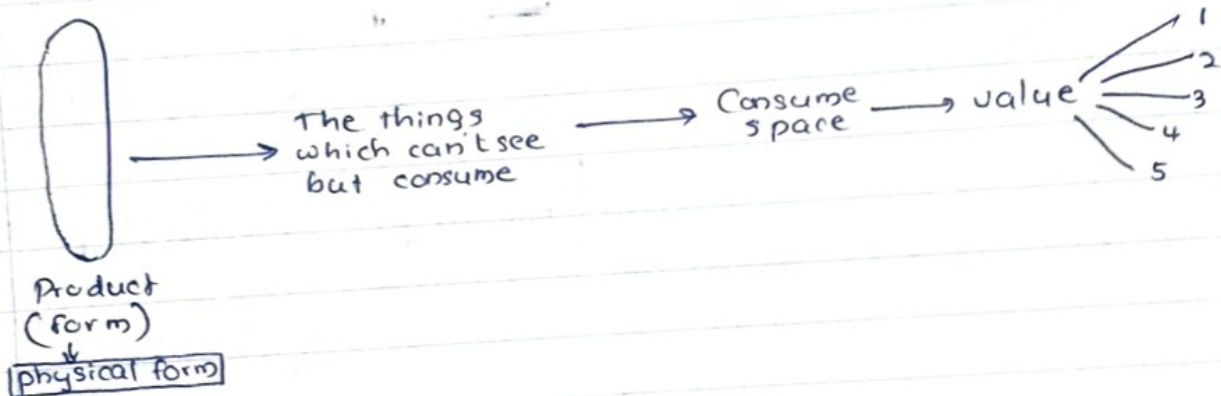 The things
which can't see
but consume
Consume
space
value
1
2
3
4
5
Product
(form)
physical form